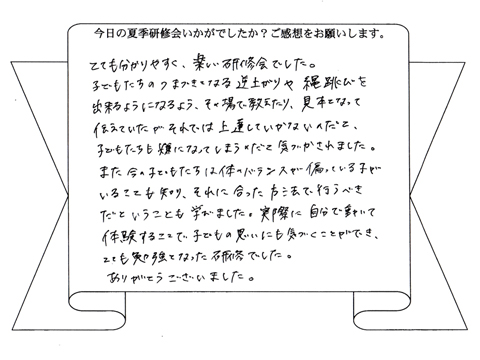 今日の夏季研修会いかがでしたか？ご感想をお願いします。
とても分かりやすく、楽しい研修会でした。
子どもたちのつまづきとなる逆上がりや縄跳びを
出来るようになるよう、その場で教えたり、見本となって
伝えていたがそれでは上達していかないのだと、
子どもたちも嫌になってしまうのだと気づかされました。
また今の子どもたちは体のバランスが偏っている子が
いることも知り、それに合った方法で行うべき
だということも学びました。実際に自分で動いて
体験することで、子どもの思いにも気づくことができ、
とても勉強となった研修でした。
ありがとうございました。